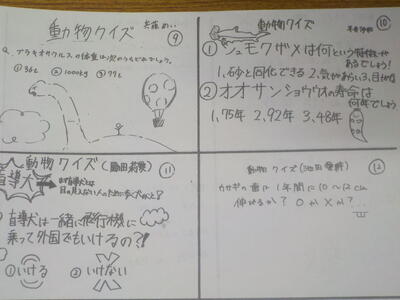 動物クイズ
9
Q. ブラキオサウルスの体重は次のうちどれでしょう。
①36t ②1000kg ③77t
動物クイズ
10
①シュモクザメは何という特徴が
あるでしょう!
1、砂と同化できる 2、気があらい 3、目が
②オオサンショウウオの寿命は
何年でしょう
1、75年 2、92年 3、48年
動物クイズ
11
盲導犬
まず盲導犬とは
目の見えない人のために歩く犬のこと?
盲導犬は一緒に飛行機に
乗って外国でもいけるの?!
①いける ②いけない
動物クイズ
12
ウサギの歯は1年間に10〜12cm
伸びるか? O or X or ?...